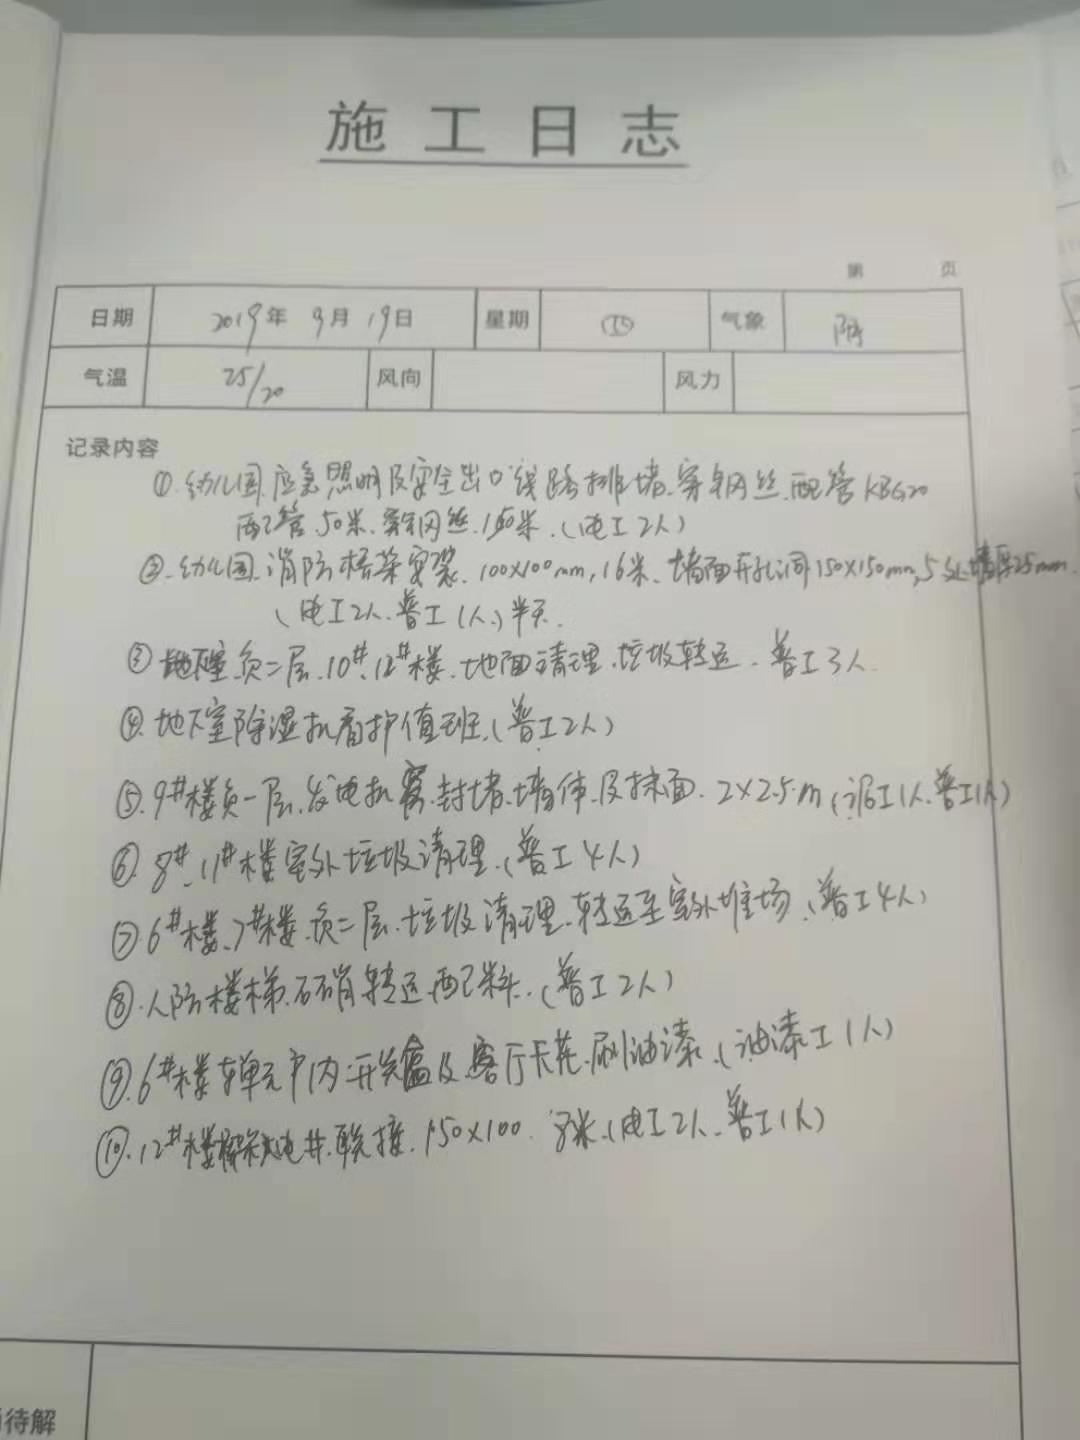 施工日志
第 页
日期 2019年 9月 19日 星期 ④ 气象 阴
气温 25/20 风向 风力
记录内容
①.幼儿园.应急照明及安全出口线路排堵.穿钢丝.配管KBG20
配管.50米.穿钢丝.150米.(电工2人)
②.幼儿园.消防桥架安装.100x100mm,16米.墙面开孔洞150x150mm,5处墙厚25mm.
(电工2人.普工1人.)半天.
③地下室.负二层.10#.12#楼.地面清理.垃圾转运.普工3人.
④.地下室除湿机看护值班.(普工2人)
⑤.9#楼负一层.发电机.封堵.墙体.及抹面.2x2.5m(泥工1人.普工1人)
⑥.8#、11#楼室外垃圾清理.(普工4人)
⑦.6#楼、7#楼.负二层.垃圾清理.转运至室外堆场.(普工4人)
⑧.人防楼梯.转运.配料.(普工2人)
⑨.6#楼单元户内开关盒及.客厅.刷油漆.(油漆工1人)
⑩.12#楼电井.联接.150x100.8米.(电工2人.普工1人)
待解